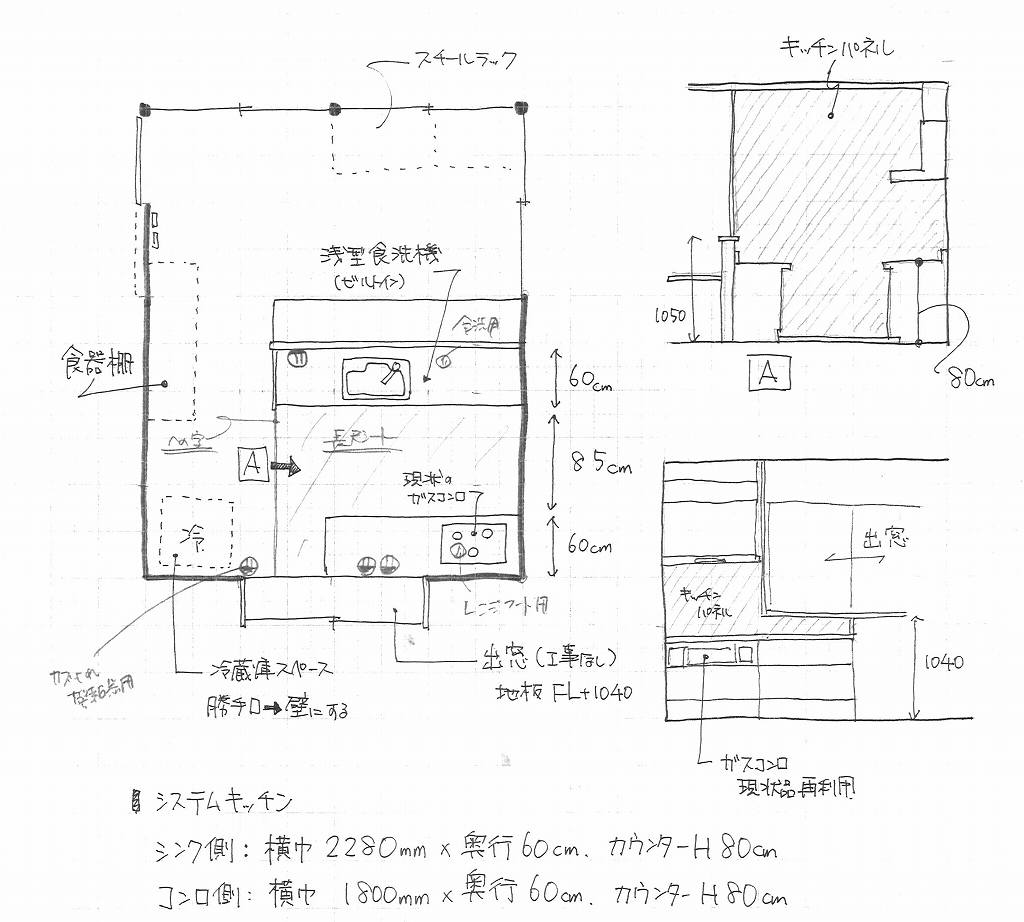 スチールラック
キッチンパネル
浅型食洗機
(ビルトイン)
食洗用
食器棚
60cm
1050
A
80cm
A
85cm
現状の
ガスコンロ
冷
60cm
出窓
キッチン
パネル
レンジフード用
冷蔵庫スペース
勝手口→壁にする
出窓(工事なし)
地板 FL+1040
1040
ガスコンロ
現状品再利用
システムキッチン
シンク側: 横巾 2280mm × 奥行60cm. カウンターH80cm
コンロ側: 横巾 1800mm × 奥行60cm. カウンターH80cm